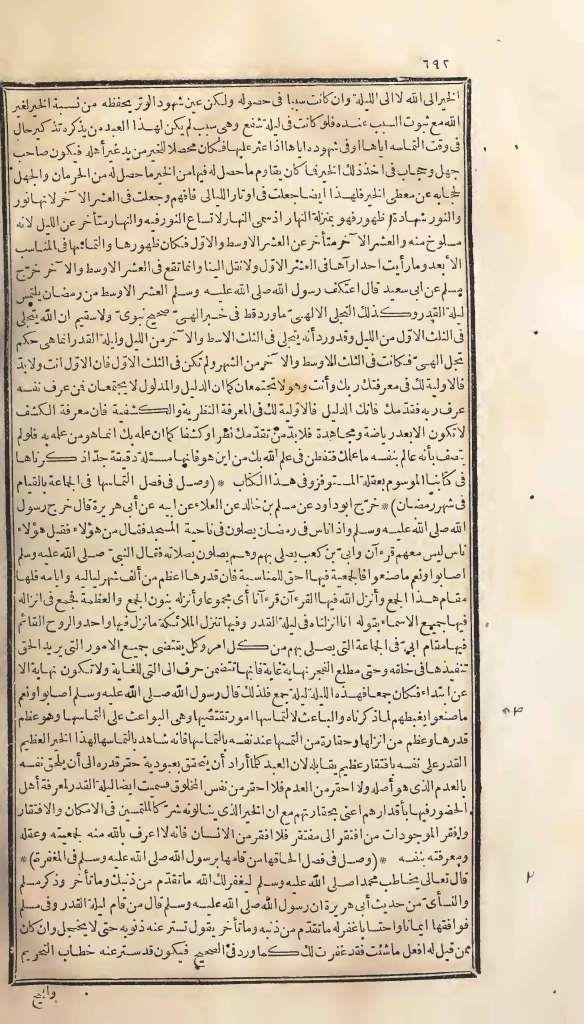 ٦٩٢
الخير الى الله لا الى الليلة وان كانت سببا فى حصوله ولكن عين شهود الوتر يحفظه من نسبة الخير لغير
الله مع ثبوت السبب عنده فلو كانت فى ليلة شفع وهى سبب لم يكن لهذا العبد من يذكره تذكير حال
فى وقت التماسه اياها أو فى شهوده اياها اذا عثر عليها فكان محصلا للخير من يد غير أهله فيكون صاحب
جهل وحجاب فى اخذ ذلك الخير فما كان يقاوم ما حصل له فيها من الخير ما حصل له من الحرمان والجهل
لحجابه عن معطى الخير فلهذا أيضا جعلت فى أوتار الليالى فافهم وجعلت فى العشر الآخر لانها نور
والنور شهادة وظهور فهو بمنزلة النهار اذ سمى النهار لاتساع النور فيه والنهار متأخر عن الليل لانه
مسلوخ منه والعشر الآخر متأخر عن العشر الاوسط والاول فكان ظهورها والتماسها فى المناسب
الابعد وما رأيت احدا رآها فى العشر الاول ولا نقل الينا وانما تقع فى العشر الاوسط والآخر خرّج
مسلم عن ابى سعيد قال اعتكف رسول الله صلى الله عليه وسلم العشر الاوسط من رمضان يلتمس
ليلة القدر وكذلك التجلى الالهىّ ما ورد قط فى خبر الهىّ صحيح نبوىّ ولا سقيم ان الله يتجلى
فى الثلث الاول من الليل وقد ورد أنه يتجلى فى الثلث الاوسط والآخر من الليل وليلة القدر انما هى حكم
تجل الهىّ فكانت فى الثلث الاوسط والآخر من الشهر ولم تكن فى الثلث الاول فان الاول انت ولا بد
فالاولية لك فى معرفتك ربك وأنت وهو لا تجتمعان كما ان الدليل والمدلول لا يجتمعان فمن عرف نفسه
عرف ربه فقدمك فانك الدليل فالاولية لك فى المعرفة النظرية والكشفية فان معرفة الكشف
لا تكون الا بعد رياضة ومجاهدة فلا بد من تقدمك نظرا وكشفا كما ان علمه بك انما هو من علمه به فلو لم
يتصف بأنه عالم بنفسه ما علمك فتفطن فى علم الله بك من اين هو فانها مسئلة دقيقة جدّا ذكرناها
فى كتابنا الموسوم بعقلة المستوفز وفى هذا الكتاب * (وصل فى فصل التماسها فى الجماعة بالقيام
فى شهر رمضان) * خرّج ابو داود عن مسلم بن خالد عن العلاء عن ابيه عن أبى هريرة قال خرج رسول
الله صلى الله عليه وسلم واذا ناس فى رمضان يصلون فى ناحية المسجد فقال من هؤلاء فقيل هؤلاء
ناس ليس معهم قرءآن وابىّ بن كعب يصلى بهم وهم يصلون بصلاته فقال النبىّ صلى الله عليه وسلم
اصابوا ونعم ما صنعوا فالجمعية فيها احق للمناسبة فان قدرها اعظم من ألف شهر لياليه وايامه فلها
مقام هذا الجمع وأنزل الله فيها القرءآن قرءآنا أى مجموعا وأنزله بنون الجمع والعظمة فجمع فى انزاله
فيها جميع الاسماء بقوله انا انزلناه فى ليلة القدر وفيها تنزل الملائكة ما نزل فيها واحد والروح القائم
فيها مقام ابىّ فى الجماعة التى يصلى بهم من كل امر وكل يقتضى جميع الامور التى يريد الحق
تنفيذها فى خلقه وحتى مطلع الفجر نهاية غاية فانها تتضمن حرف الى التى للغاية ولا تكون نهاية الا
عن ابتداء فكان جمعا فهذه الليلة ليلة جمع فلذلك قال رسول الله صلى الله عليه وسلم اصابوا ونعم
ما صنعوا يغبطهم لما ذكرناه والباعث لالتماسها امور تقتضيها وهى البواعث على التماسها وهو عظم
قدرها وعظم من انزلها وحقارة من التمسها عند نفسه بالتماسها فانه شاهد بالتماسها لهذا الخير العظيم
القدر على نفسه بافتقار عظيم يقابله لان العبد كلما أراد أن يتحقق بعبوديته حقر قدره الى أن يلحق نفسه
بالعدم الذى هو أصله ولا احقر من العدم فلا احقر من نفس المخلوق فسميت ايضا ليلة القدر لمعرفة أهل
الحضور فيها بأقدارهم اعنى بحقارتهم مع ان الخير الذى ينالونه شركا للملتمسين فى الامكان والافتقار
وافقر الموجودات من افتقر الى مفتقر فلا افقر من الانسان فانه لا اعرف بالله منه لجمعيته وعقله
ومعرفته بنفسه * (وصل فى فصل الحاقها من قامها برسول الله صلى الله عليه وسلم فى المغفرة) *
قال تعالى يخاطب محمدا صلى الله عليه وسلم ليغفر لك الله ما تقدّم من ذنبك وما تأخر وذكر مسلم
والنسأى من حديث أبى هريرة ان رسول الله صلى الله عليه وسلم قال من قام ليلة القدر وفى مسلم
فوافقها ايمانا واحتسابا غفر له ما تقدّم من ذنبه وما تأخر يقول تستر عنه ذنوبه حتى لا يخجل وان كان
ممن قيل له افعل ما شئت فقد غفرت لك كما ورد فى الصحيح فيكون قد ستر عنه خطاب التحريم